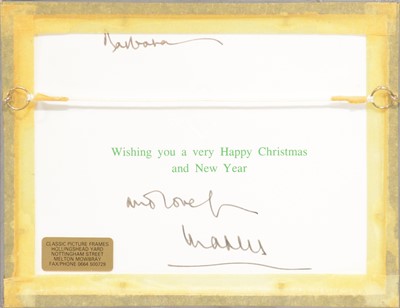 Barbara
Wishing you a very Happy Christmas
and New Year
and love from
Charles
CLASSIC PICTURE FRAMES
HOLLINGSHEAD YARD
NOTTINGHAM STREET
MELTON MOWBRAY